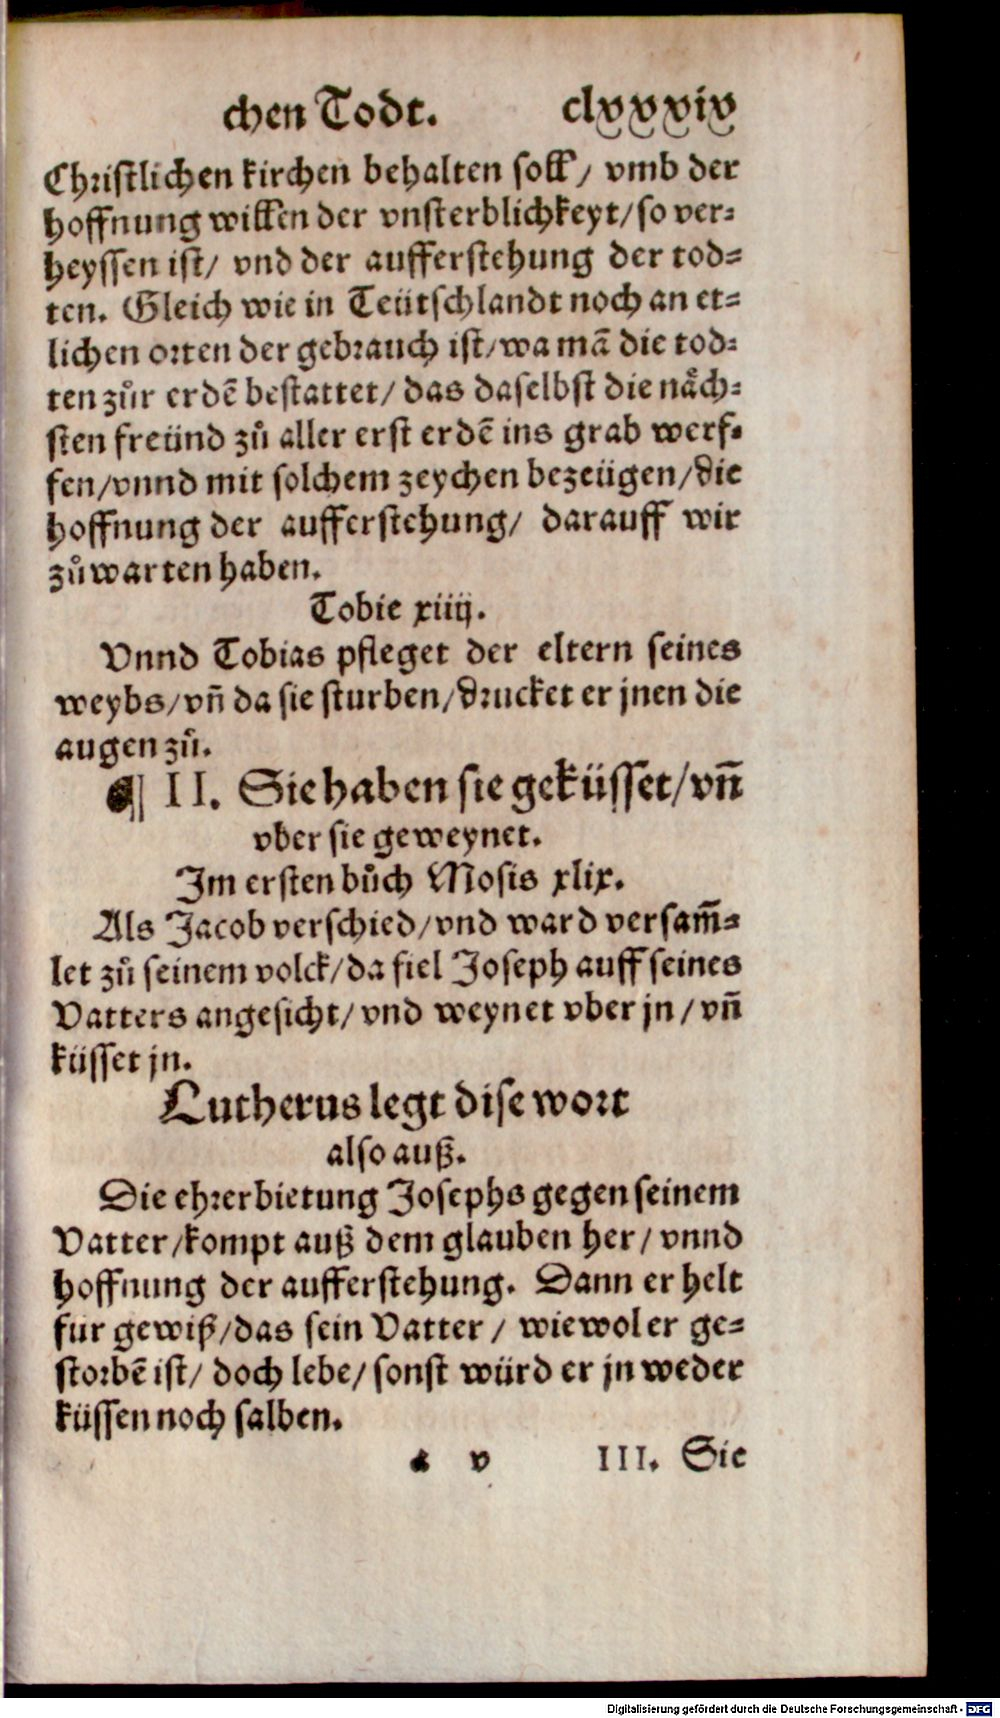 chen Todt. clxxxiv
Christlichen kirchen behalten soll/ vmb der
hoffnung willen der vnsterblichkeyt/ so ver-
heyssen ist/ vnd der aufferstehung der tod-
ten. Gleich wie in Teütschlandt noch an et-
lichen orten der gebrauch ist/ wa mā die tod-
ten zůr erdē bestattet/ das daselbst die nåch-
sten freünd zů aller erst erdē ins grab werf-
fen/ vnnd mit solchem zeychen bezeügen/ die
hoffnung der aufferstehung/ darauff wir
zůwarten haben.
Tobie xiiij.
Vnnd Tobias pfleget der eltern seines
weybs/ vñ da sie sturben/ drucket er jnen die
augen zů.
¶ II. Sie haben sie geküsset/ vñ
vber sie geweynet.
Im ersten bůch Mosis xlix.
Als Jacob verschied/ vnd ward versam̄-
let zů seinem volck/ da fiel Joseph auff seines
Vatters angesicht/ vnd weynet vber jn/ vñ
küsset jn.
Lutherus legt dise wort
also auß.
Die ehrerbietung Josephs gegen seinem
Vatter/ kompt auß dem glauben her/ vnnd
hoffnung der aufferstehung. Dann er helt
für gewiß/ das sein Vatter/ wiewol er ge-
storbē ist/ doch lebe/ sonst würd er jn weder
küssen noch salben.
a v III. Sie
Digitalisierung gefördert durch die Deutsche Forschungsgemeinschaft - DFG